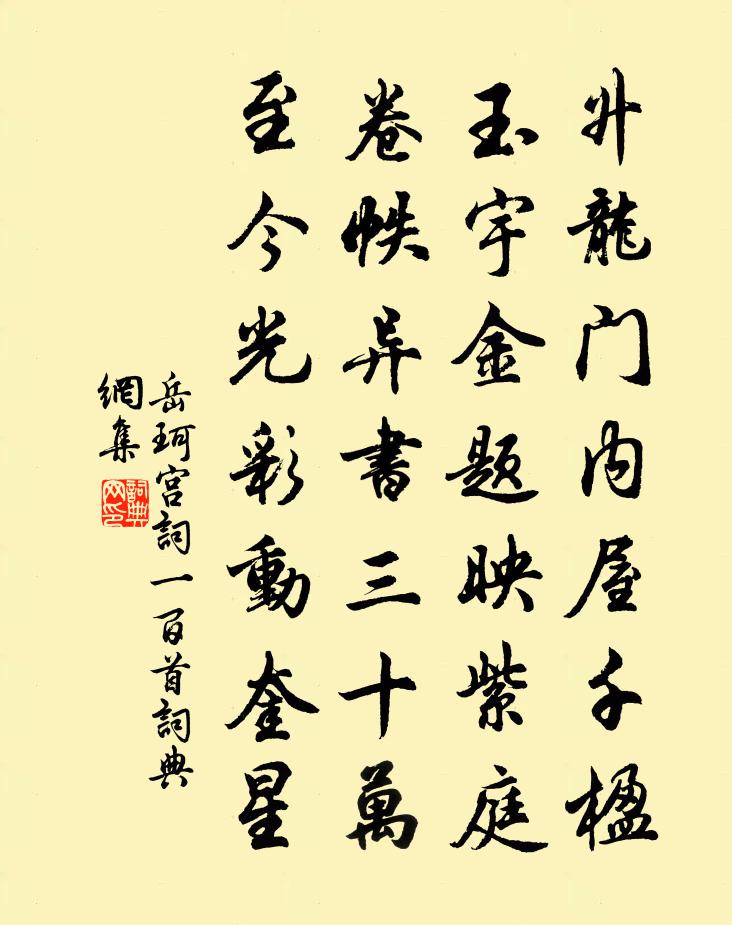 升龍門内屋千楹
玉宇金題映紫庭
卷帙异書三十萬
至今光彩動奎星
岳珂宫詞一百首詞典
網集
詞典
网印